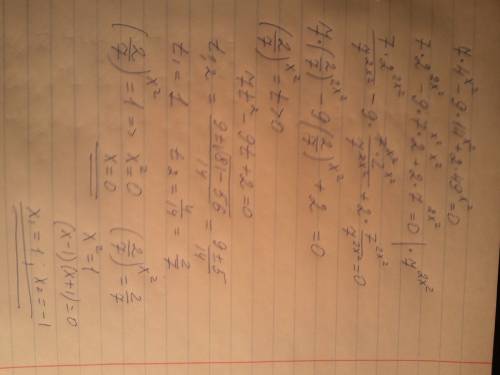 7·4^{x²} − 9·14^{x²} + 2·49^{x²} = 0
7·2^{2x²} − 9·7^{x²}·2^{x²} + 2·7^{2x²} = 0 | · 7^{2x²}
7·2^{2x²}/7^{2x²} − 9·7^{x²}·2^{x²}/7^{2x²} + 2·7^{2x²}/7^{2x²} = 0
7·(2/7)^{2x²} − 9(2/7)^{x²} + 2 = 0
(2/7)^{x²} = t > 0
7t² − 9t + 2 = 0
t₁,₂ = 9±√81−56/14 = 9±5/14
t₁ = 1 t₂ = 4/14 = 2/7
(2/7)^{x²} = 1 => x² = 0 (2/7)^{x²} = 2/7
x = 0 x² = 1
(x−1)(x+1) = 0
x₁ = 1, x₂ = −1